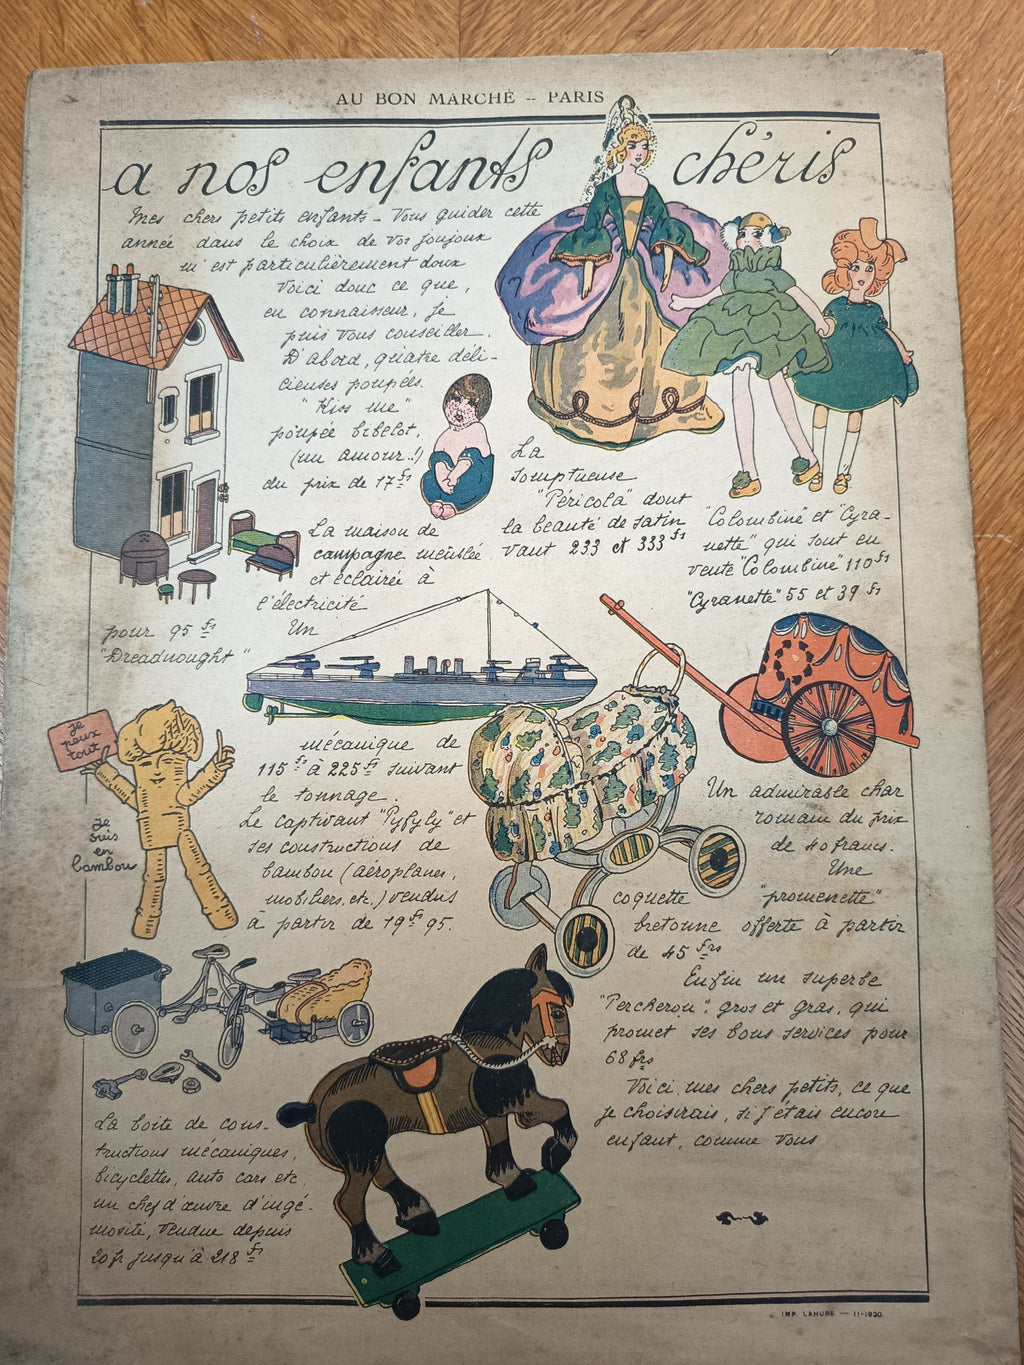 AU BON MARCHÉ -- PARIS
a nos enfants chéris
Mes chers petits enfants - Vous guider cette
année dans le choix de vos joujoux
m'est particulièrement doux
Voici donc ce que,
en connaisseur, je
puis vous conseiller.
D'abord, quatre déli-
cieuses poupées.
"Kiss me"
poupée bibelot,
(un amour..!)
du prix de 17 frs
La
somptueuse
"Péricola" dont
la beauté de satin
vaut 233 et 333 frs
"Colombine" et "Cyra-
nette" qui sont en
vente "Colombine" 110 frs
"Cyranette" 55 et 39 frs
La maison de
campagne meublée
et éclairée à
l'électricité
pour 95 frs
Un
"Dreadnought"
mécanique de
115 frs à 225 frs suivant
le tonnage.
je
peux
tout
je
suis
en
bambou
Le captivant "Pyfyly" et
ses constructions de
bambou (aéroplanes,
mobiliers, etc.) vendus
à partir de 19 frs 95.
Un admirable char
romain du prix
de 40 francs.
Une
coquette "promenette"
bretonne offerte à partir
de 45 frs
Enfin un superbe
"Percheron", gros et gras, qui
promet ses bons services pour
68 frs
Voici, mes chers petits, ce que
je choisirais, si j'étais encore
enfant, comme vous
La boite de cons-
tructions mécaniques,
bicyclettes, auto cars etc,
un chef d'œuvre d'ingé-
niosité, vendue depuis
20 fr jusqu'à 218 frs
IMP. LAHURE — 11-1920